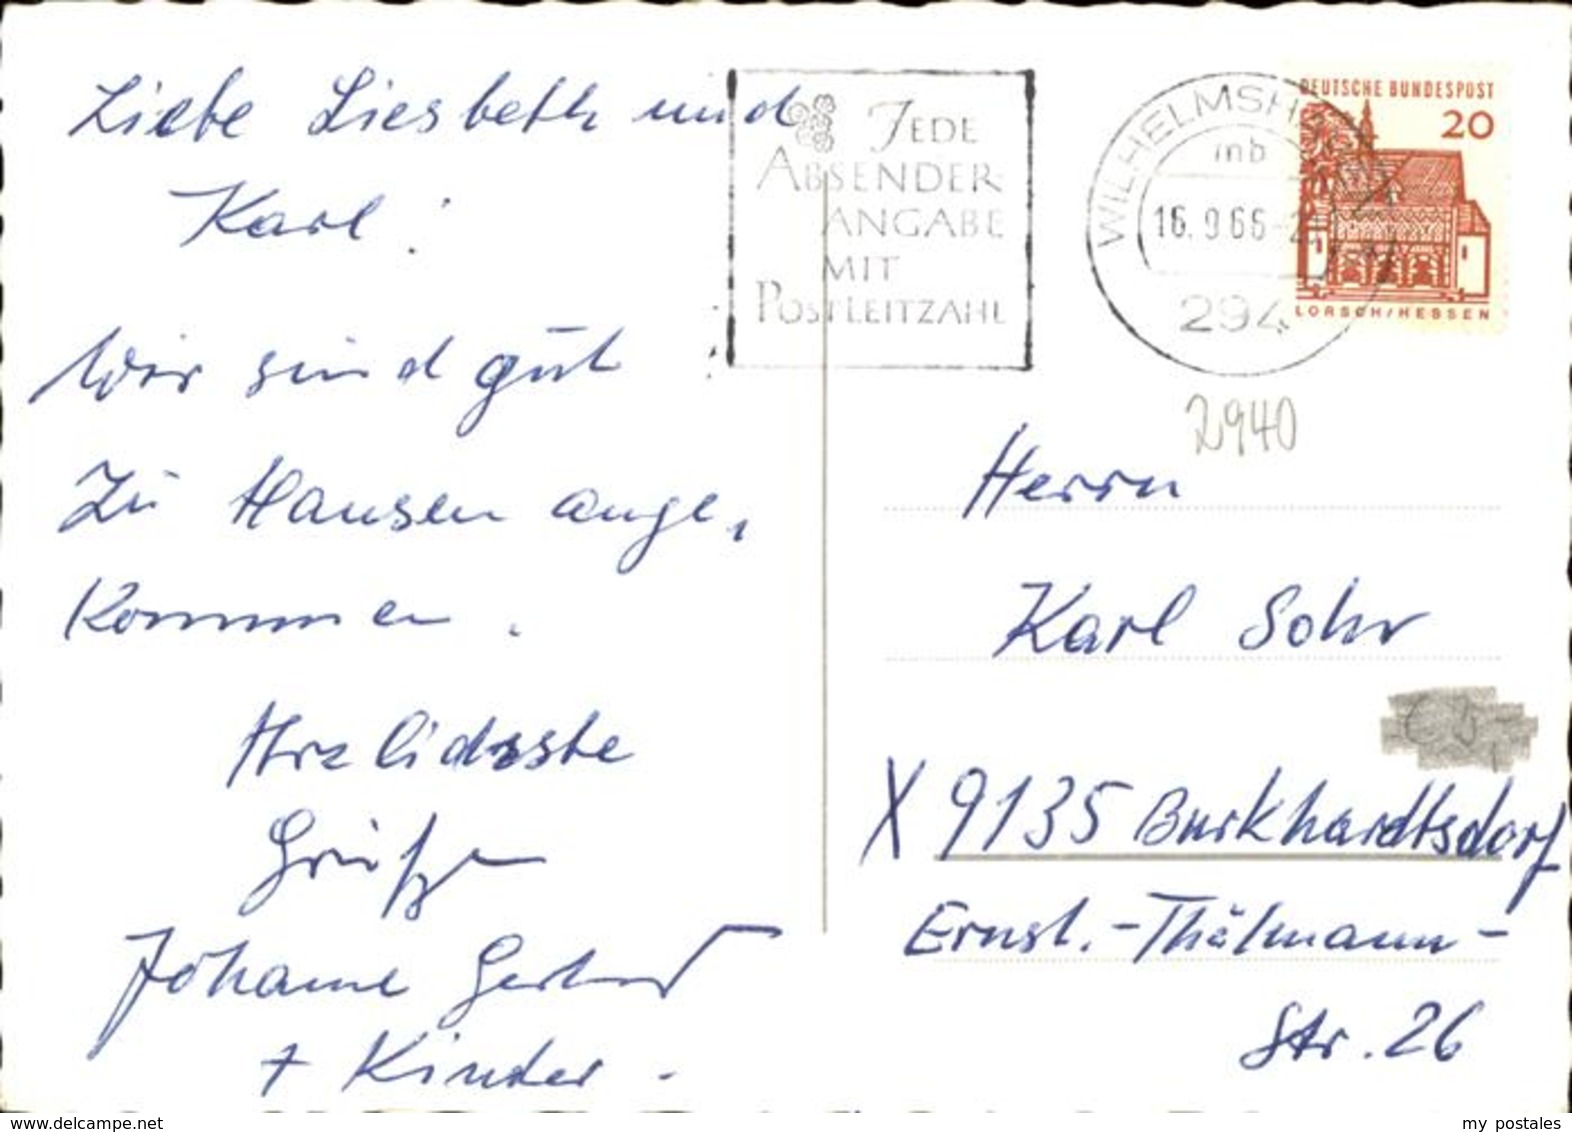 Liebe Liesbeth und
Karl!
Wir sind gut
Zu Hausen ange,
Kommen.
Herzlichste
Grüße
Johanne Gerhard
+ Kinder.
JEDE
ABSENDER-
ANGABE
MIT
POSTLEITZAHL
WILHELMSH
mb
16.9.66-2
294
DEUTSCHE BUNDESPOST
20
LORSCH/HESSEN
2940
Herrn
Karl Sohr
X 9135 Burkhardtsdorf
Ernst.-Thälmann-
Str. 26
delcampe.net
my_postales